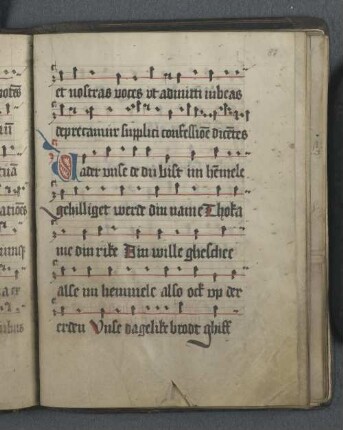 et nostras voces vt admitti iubeas
deprecamur supplici confessiōe dicētes
Vader vnse de du bist im hēmele
gehilliget werde din name Thoka
me din rike Din wille gheschee
alse im hemmele also ock vp der
erden Vnse dagelike brodt ghiff